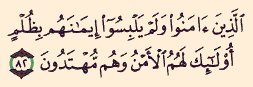 ٱلَّذِينَ ءَامَنُوا۟ وَلَمْ يَلْبِسُوٓا۟ إِيمَـٰنَهُم بِظُلْمٍ
أُو۟لَـٰٓئِكَ لَهُمُ ٱلْأَمْنُ وَهُم مُّهْتَدُونَ ٨٢